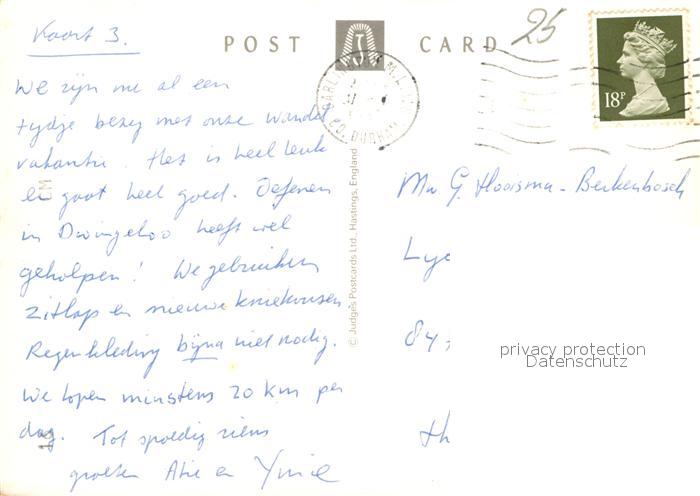 Kaart 3.
POST CARD
25
18P
We zijn nu al een
tijdje bezig met onze wandel
vakantie. Het is heel leuk
en gaat heel goed. Oefenen
in Dwingeloo heeft wel
geholpen! We gebruiken
zitlap en nieuwe kniekousen
Regenkleding bijna niet nodig.
We lopen minstens 20 km per
dag. Tot spoedig ziens
groeten Atie en
© Judges Postcards Ltd., Hastings, England
CO. DURHAM
Mw G. Hooisma - Berkenbosch
Lyc
84
th
privacy protection
Datenschutz